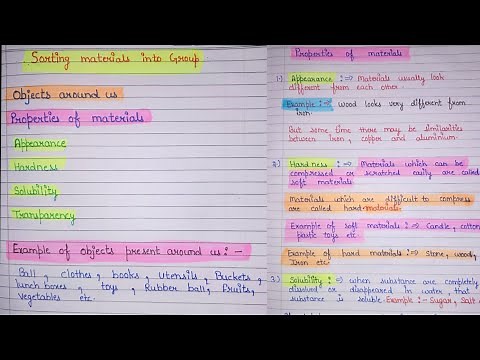 Sorting materials into Group
Objects around us
Properties of materials
Appearance
Hardness
Solubility
Transparency
Example of objects present around us :-
Ball, clothes, books, utensils, Buckets,
lunch boxes, toys, Rubber ball, fruits,
vegetables etc.
Properties of materials
1.) Appearance :⇒ Materials usually look
different from each other.
Example :⇒ wood looks very different from
iron.
But some time there may be similarities
between iron, copper and aluminium.
2.) Hardness :⇒ Materials which can be
compressed or scratched easily are called
soft materials
Materials which are difficult to compress
are called hard materials.
Example of soft materials :- Candle, cotton,
plastic toys etc.
Example of hard materials :- Stone, wood,
Iron etc.
3.) Solubility :⇒ when substance are completely
dissolved or disappeared in water, that
substance is soluble. Example :- Sugar, Salt